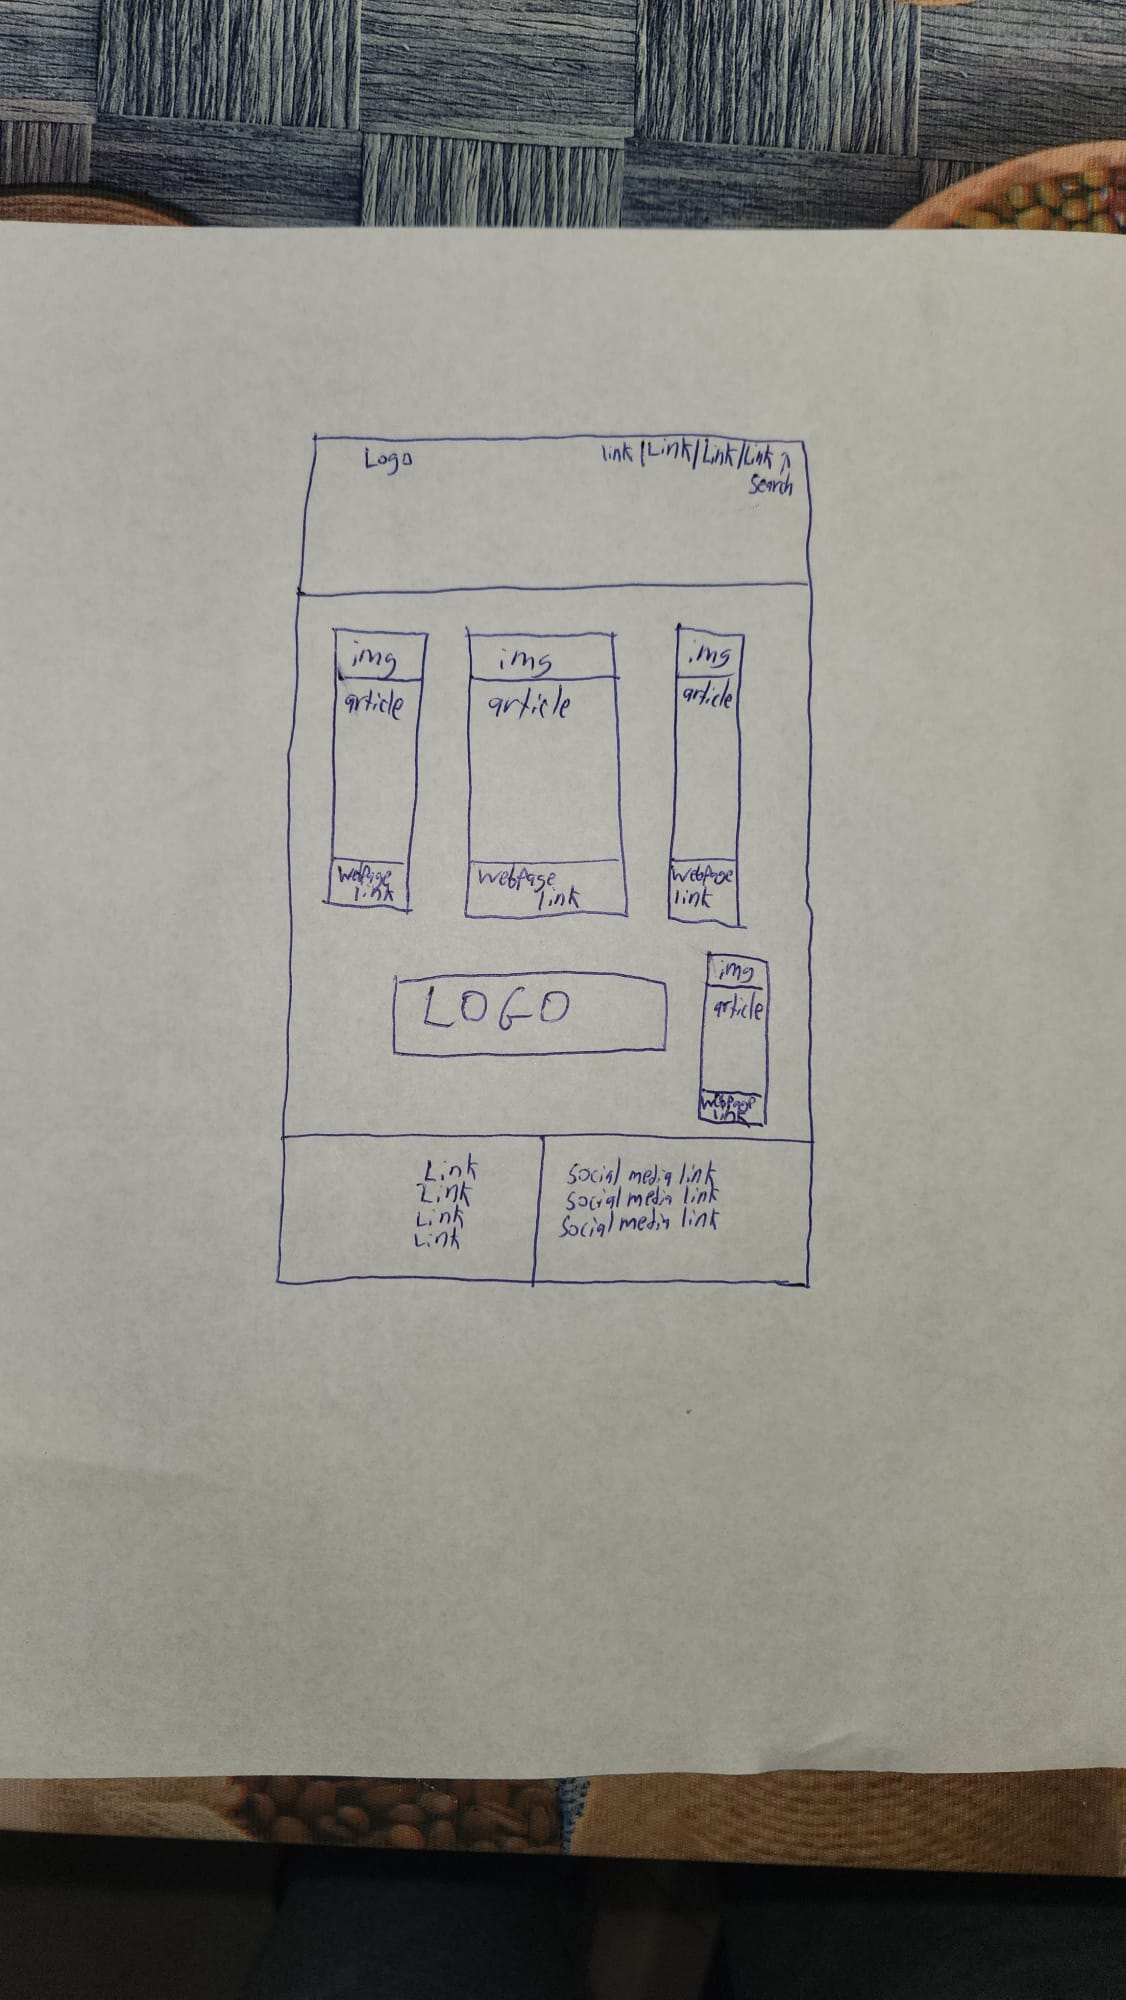 Logo
link | Link | Link | Link
Search
img
article
Webpage
link
img
article
Webpage
link
img
article
Webpage
link
LOGO
img
article
Webpage
link
Link
Link
Link
Link
Social media link
Social media link
Social media link